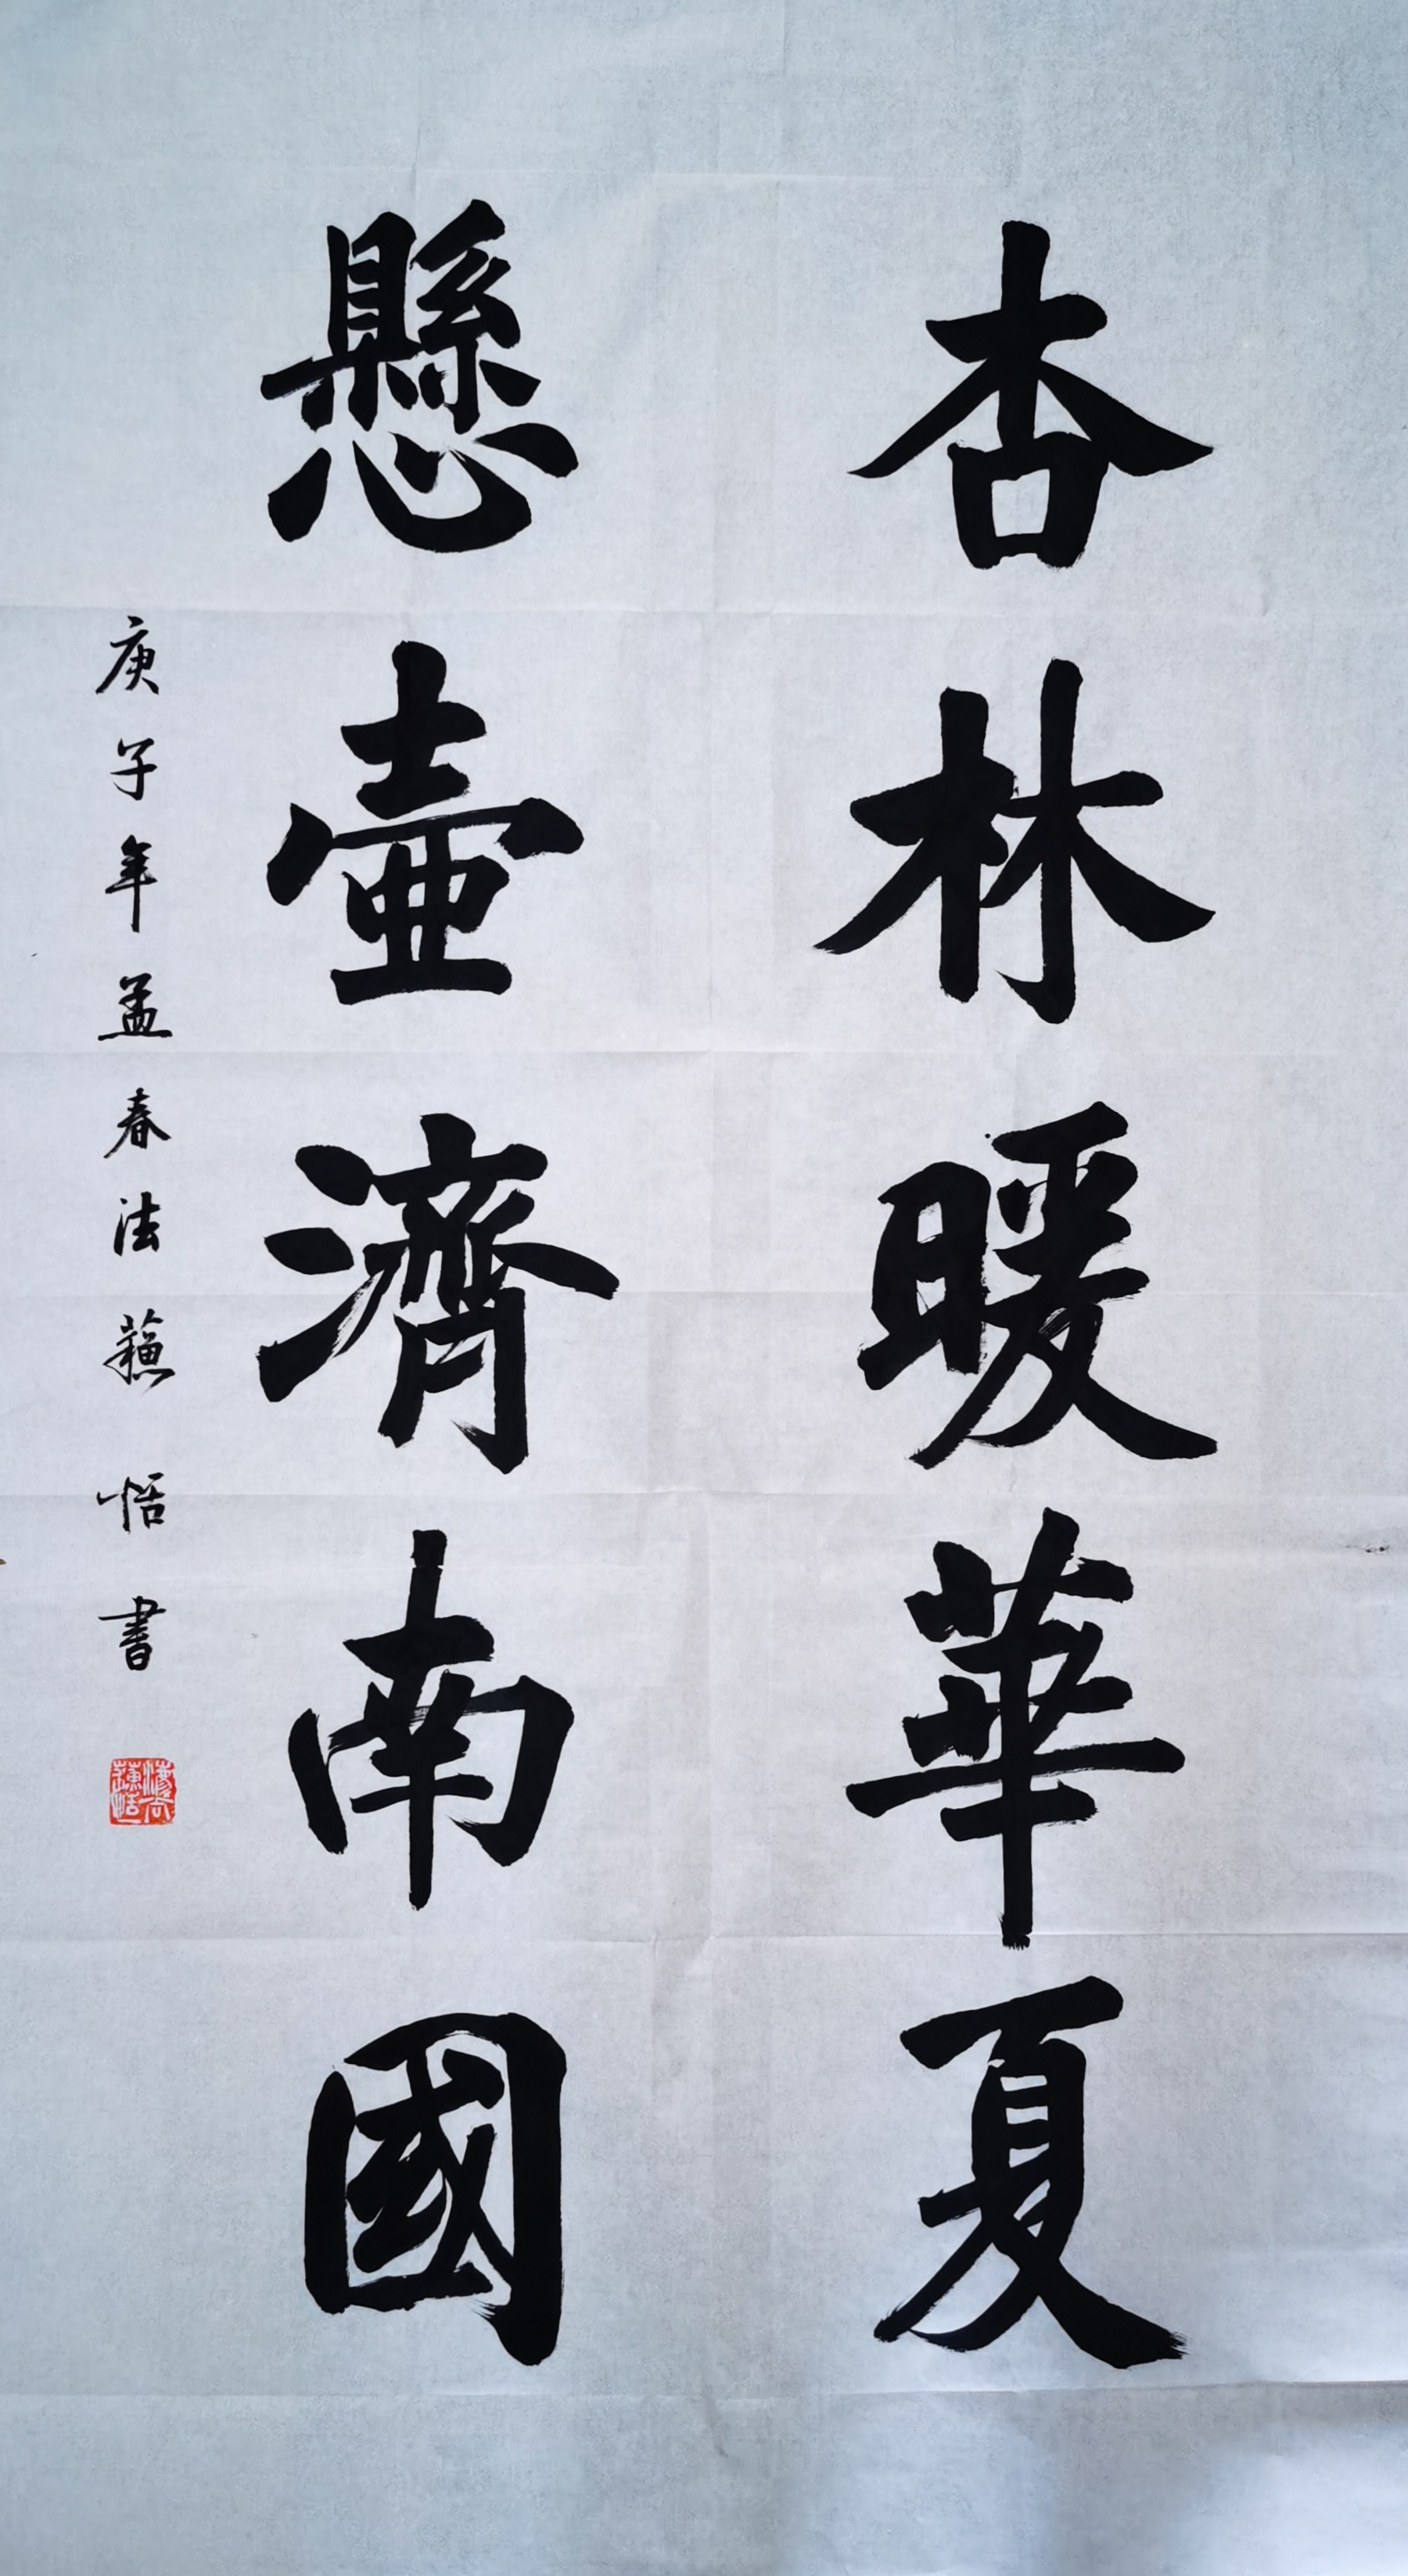 杏林暖華夏
懸壺濟南國
庚子年孟春法蘓恬書